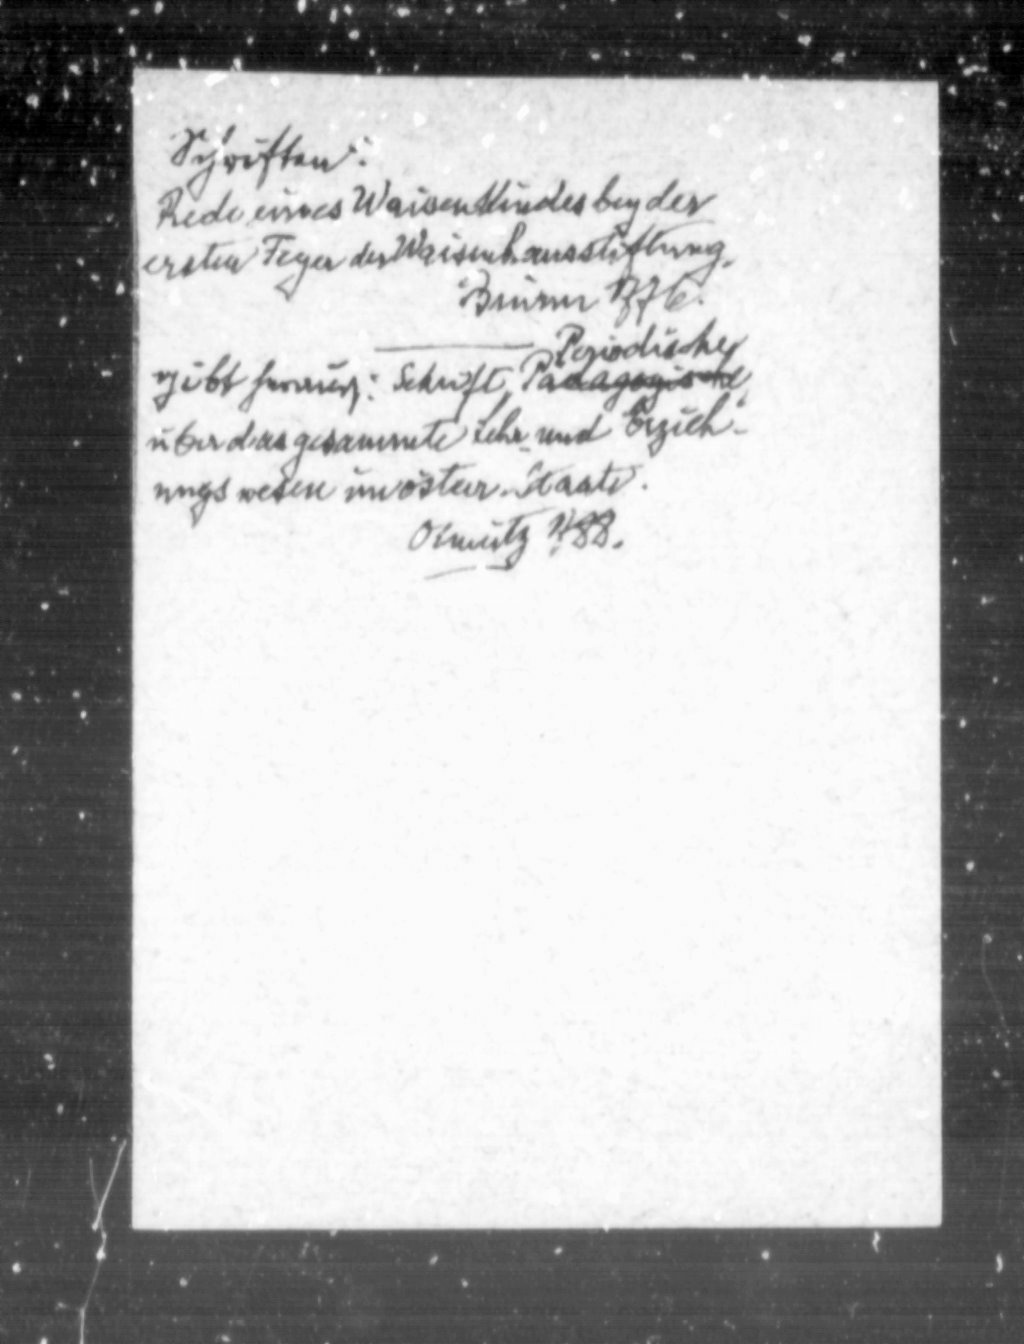 Schriften:
Rede eines Waisenkindes bey der
ersten Feyer der Waisenhausstiftung.
Brünn 1776.
Periodische
gibt heraus: Schrift, Pädagogische,
über das gesammte Lehr- und Erzieh-
ungswesen im österr. Staate.
Olmütz 1788.